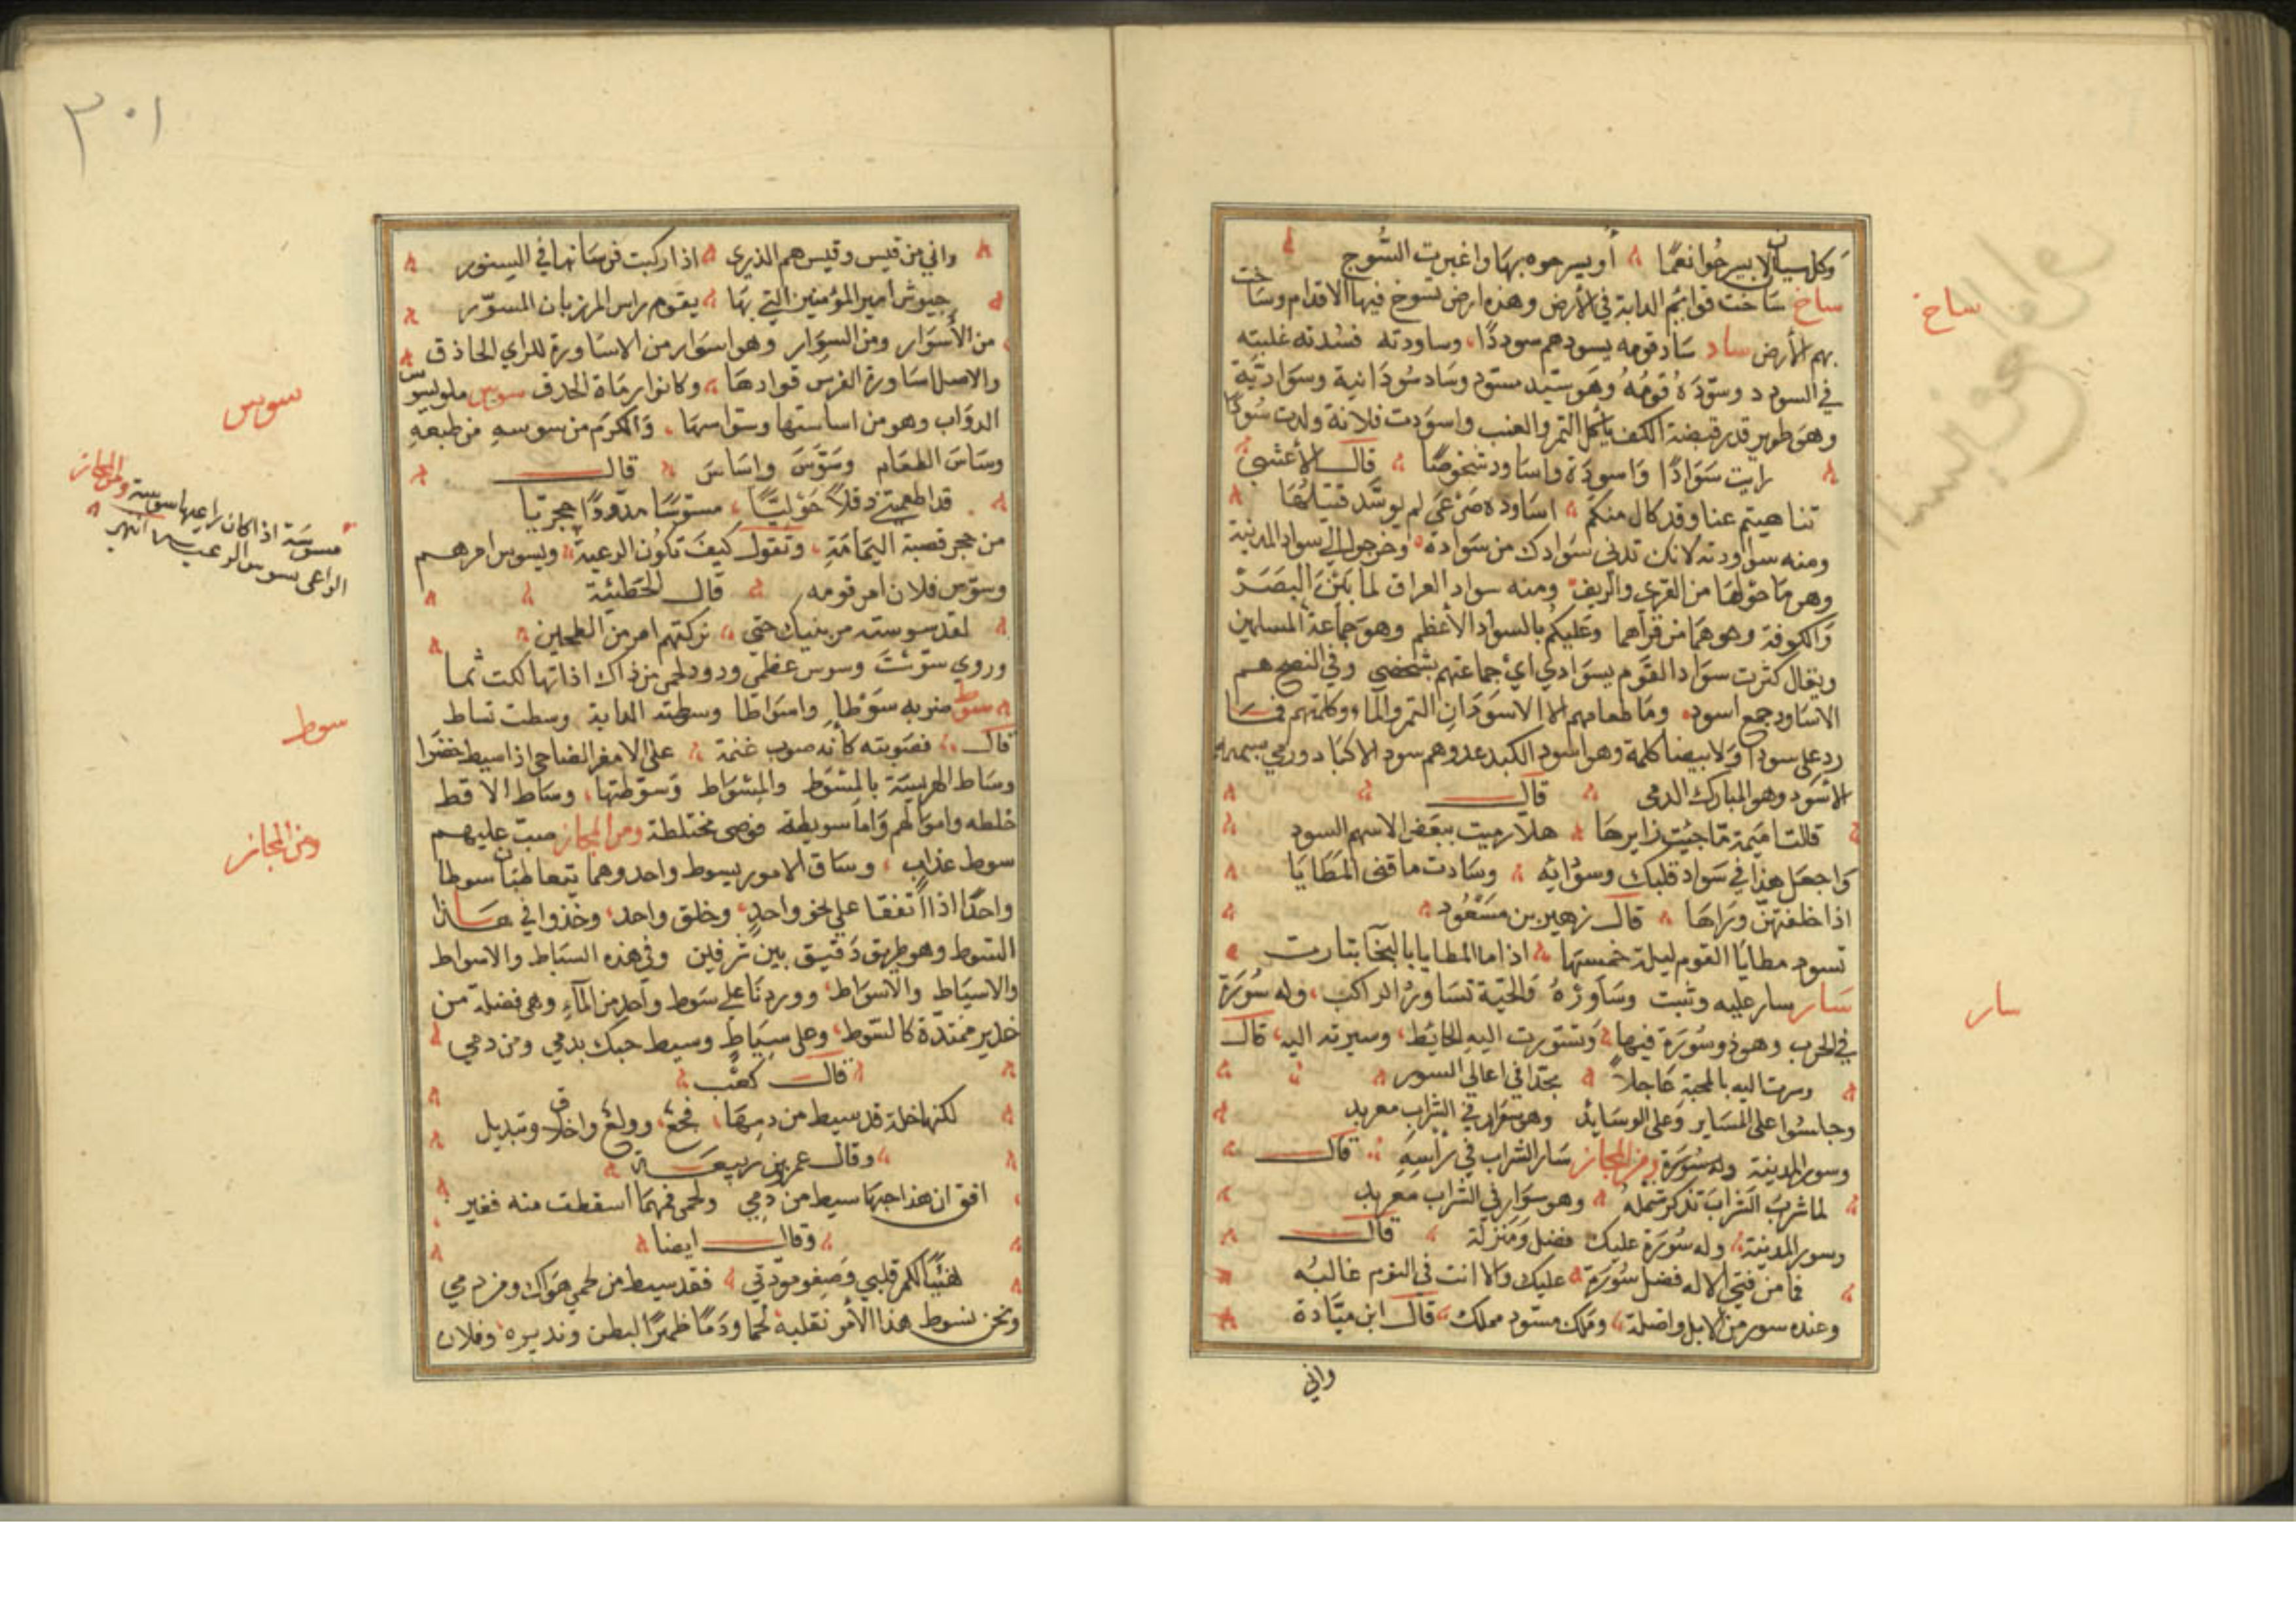 وكل سيان لا يسرحوا نعما أو يسرحوه بها واغبرت السُّوج
ساخ ساخت قوائم الدابة في الأرض وهذه ارض تسوخ فيها الاقدام وساخت
بهم الأرض ساد ساد قومه يسودهم سوددًا وساودته فسدته غلبته
في السودد وسوّده قومُهُ وهو سيد مسود وساد سُودَانية وسوادية
وهي طوير قدر قبضة الكف يأكل التمر والعنب واسودت فلانة ولدت سُودًا
رايت سَوَادًا وَاسودَة واساود شخوصًا قال الأعشى
تناهيتم عنا وقد كان منكم اساوده صَرْعَى لم يوسّد قتيلُهَا
ومنه ساودته لانك تدنى سَوَادك من سَوَاده وخرجوا الى سواد المدينة
وهو مَا حَوْلها من القرى والريف ومنه سواد العراق لما بَيْنَ البَصَرَة
وَالكوفة وهو هما من قراهما وعَليكُم بالسواد الأعظم وهو جماعة المسلمين
ويقال كثرت سوَاد القَوم بسَوادي أي جماعتهم بشخصي وفي النصح هم
الاسَاود جمع اسود وما طعامهم الا الاسوَدَانِ التمر والماء وكلمتهم فما
رد على سودا وَلا بيضا كلمة وهو اسود الكبد عدو وهم سود الاكبَاد ورمي بسهمه
الأسَود وهو المبارك الدمى قال
قالت اميمة مّا جئت زايرها هلّا رميت ببعض الاسهم السود
وَاجعَل هذا في سَواد قلبك وسوَائه وسَادت ناقتى المَطَايَا
اذا خلفتهن ورَاهَا قال زهير بن مسعُود
تسود مطايا القوم ليلة خمسهَا اذا ما المطايا بالنجا تبارت
سَار سار عليه وثبت وسَاورهُ وَالحيّة تسَاور الراكب وله سُورَة
في الحرب وهو ذو سُورَة فيها وَتسورت اليه الحايط وسيرته اليه قال
وسرت اليه بالمحبة عَاجلاً في اعالي السور
وجلسُوا على المساير وَعلى الوسَائد وهو سَوار في الشراب معربد
وسور المدينة وله سُورَة ومن المجاز سَار الشراب في رَأسِهِ قال
لما شربْ الشرَابَ تذكر شملهُ وهو سوَار في الشراب معربد
وسور المدينة وله سُورَة عليك فضل وَمَنزلة قال
فما من فتي الا له فضل سُورَة عليك والا انت في اللؤم غالبُه
وعنده سور من الابل واصلة وملك مسوّد مملك قال ابن ميّادة
واني
ساخ
سار
٣٠١
واني من قيس وقيس هم الذرى اذا ركبت فرسَانها في السنور
جيوش امير المؤمنين التي بهَا يقوم راس المرزبان المسوّر
من الأسوَار ومن السِوار وهو اسوَار من الاسَاورة للراي الحاذق
والاصل اساورة الفرس قوادهَا وكانوا رمَاة الحدق سوس ملوليسوس
الدوَاب وهو من اساستها وسواسها وَالكرَم من سوسهِ من طبعهِ
وسَاسَ الطعَام وَسَوّسَ واسَاسَ قال
قد اطعمتني دقلًا حَوْليًّا مسوّسًا مدَوّدًا حجريّا
من حجر قصبة اليمَامَةِ وتقول كيفَ تكون الرعية ويسوس امرهم
وسوّس فلان امر قومه قال الحطيئة
لقد سوست امر بنيك حتى تركتهم امر من الطحين
وروي سوّسْتَ وسوس عظمي ودود لحمي من ذاك اذا تهالكت ثما
سوط ضربه سَوْطا واسوَاطا وسطته الدابة وسطت تساط
قال فصوبته كأنه صوب غبية على الامعز الضاحي اذا سيط خضرا
وسَاط الهريسَة بالمسْوط والمِسْواط وسوّطتها وسَاط الاقط
خلطه واموَالهم وَاما سويطة فوضى مختلطة ومن المجاز صبّ عليهم
سوط عذاب وساق الامور بسوط واحد وهما يتعاطيان سوطا
واحدًا اذا اتفقا على نحو واحدٍ وخلق واحد وخذوا في هذا
السَوط وهو طريق دَقيق بين شرفين وفي هذه السيَاط والاسواط
والاسيَاط والاسوَاط ووردنَا على سَوط واحد من الماءِ وهي فضلة من
غدير ممتدّة كالسّوط وعلى سِيَاطٍ وسيط حبك بدمي ومن دمي
قال كعْب
لكنها خلة قد سيط من دمِهَا فجع وولع واخلاف وتبديل
وقال عمر بن ربيعة
افق ان هذا حبهَا سيط من دَمِي ولحمى فمهما اسقطت منه فغير
وقال ايضا
لهنّيًا لكم قلبي وَصِفو مودّتي فقد سيط من لحمي هوَاك ومن دمي
ونحن نسوط هذا الأمر نقلبه لحما ودَمًا ظهرًا لبطن وندبره وفلان
سوس
ومن المجاز
مسوسَة اذا كان راعيها سوسة
الراعى يسوس الرعية
سوط
ومن المجاز